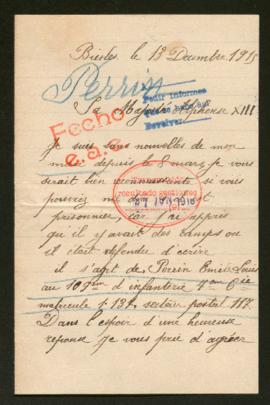 Bioles, le 13 Decembre 1915
Perrin
Pedir informes
Devolver
Sa Majesté Alphonse XIII
Fecho
Je suis sans nouvelles de mon
mari depuis le 8 mars, je vous
serait bien reconnaissante si vous
pourriez me
27 JAN 1916
prisonnier, car j'ai appris
qu'il y avait des camps ou
il était defendu d'ecrire
il s'agit de Perrin Emile Louis
au d'infanterie 7em Cie
matricule 5131, secteur postal 117.
Dans l'espoir d'une heureuse
reponse je vous prie d'agréer